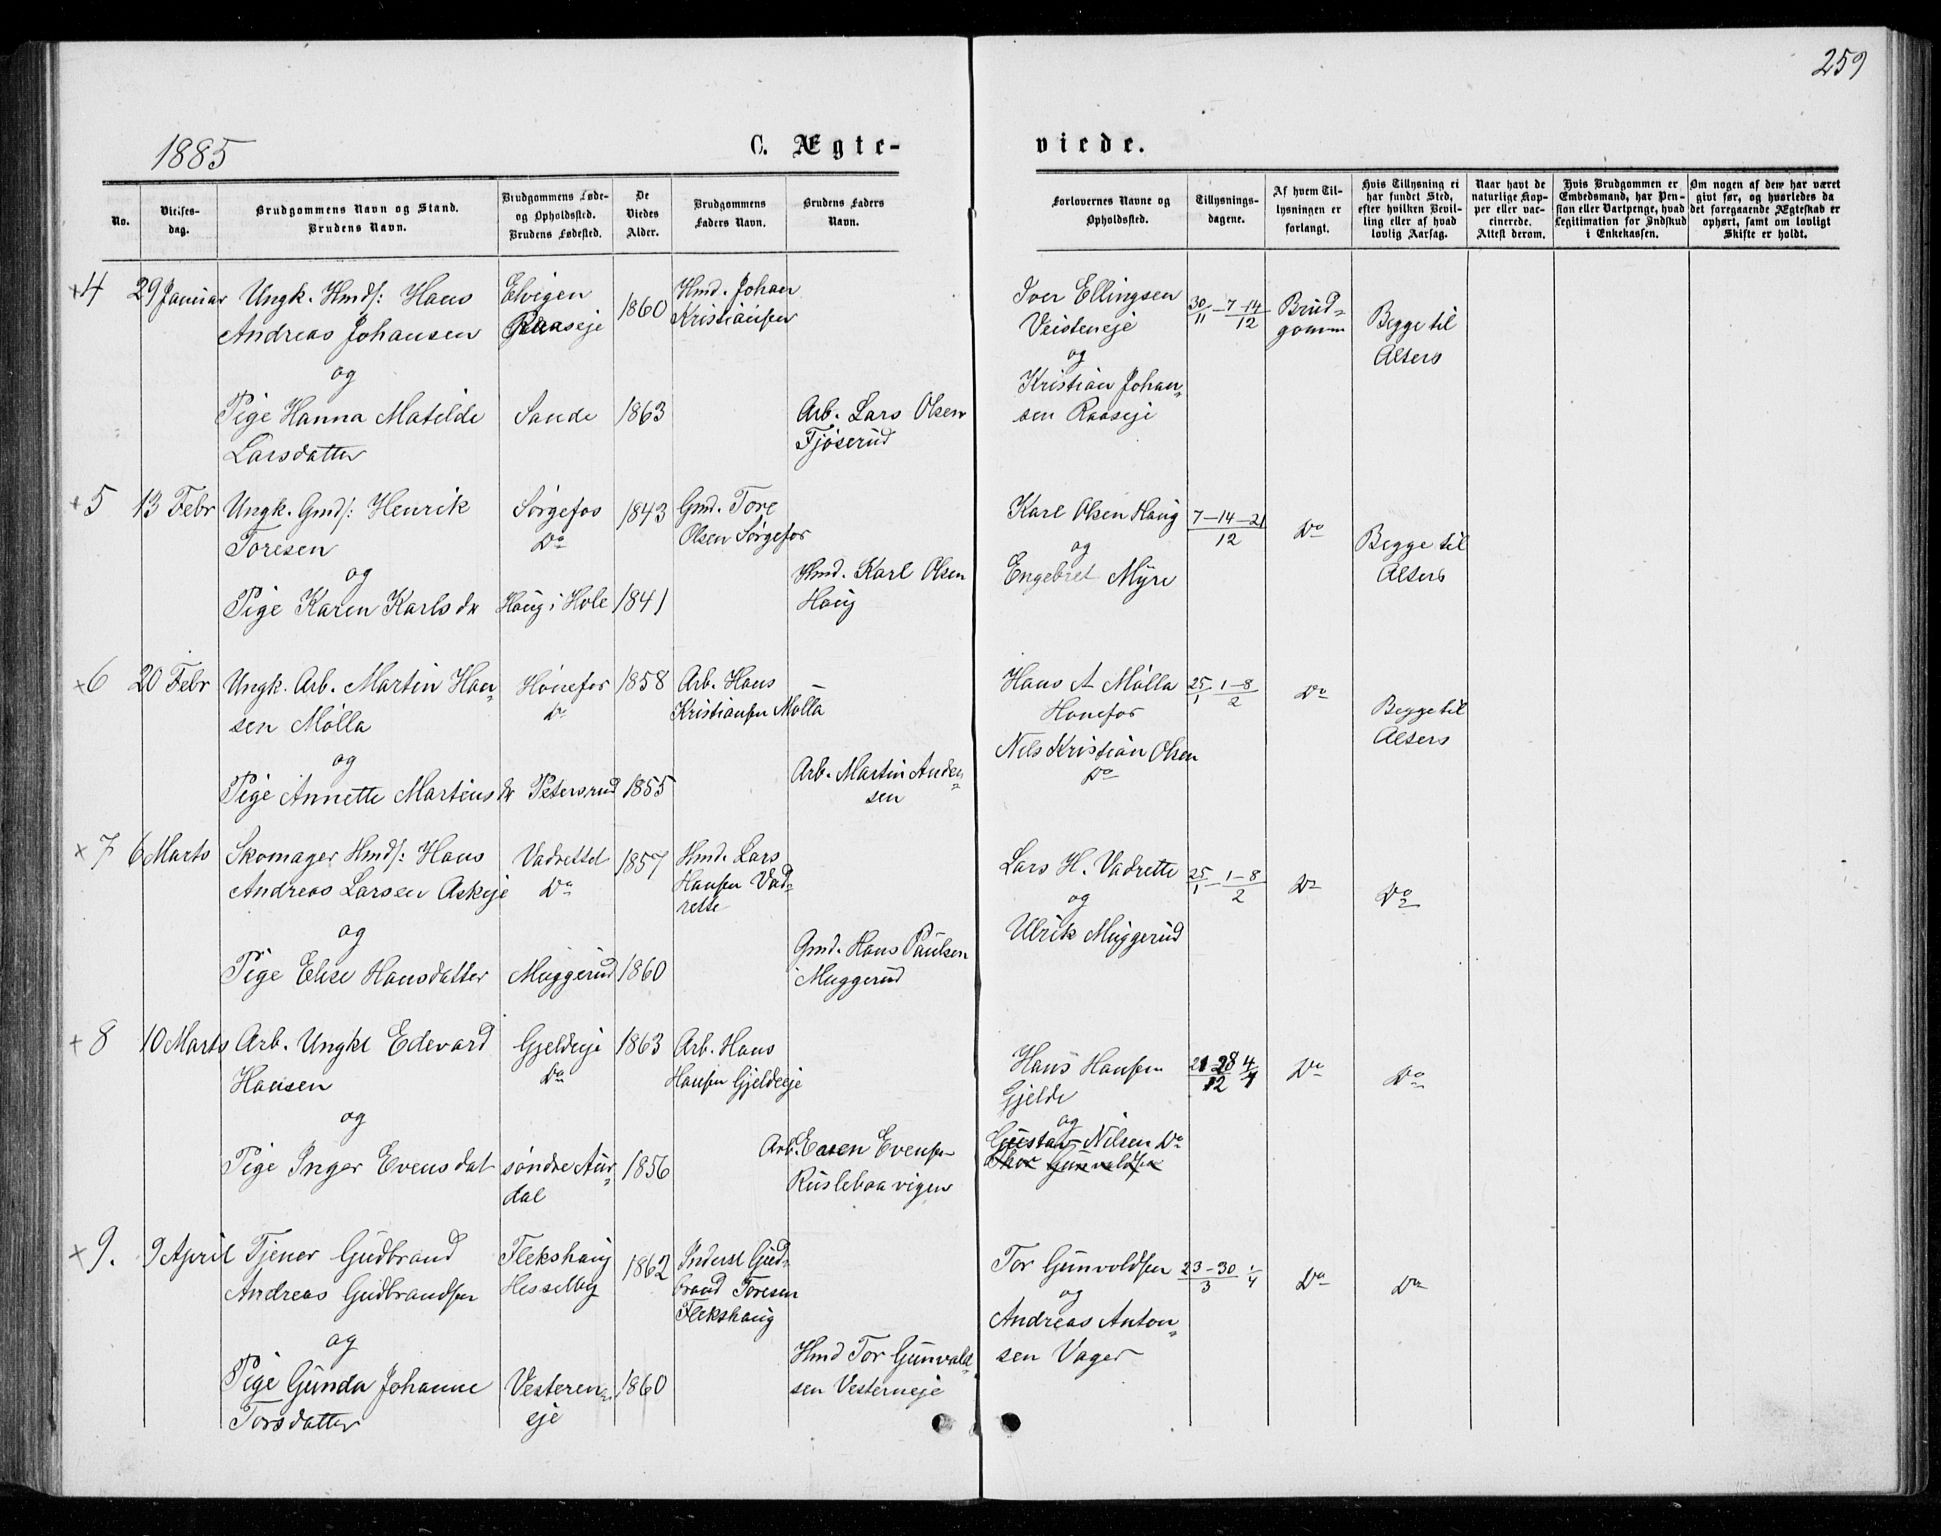 259
1885
C. Ægte-
viede.
No.
Vielses-
dag.
Brudgommens Navn og Stand.
Brudens Navn.
Brudgommens Føde-
og Opholdssted.
Brudens Fødested.
De
Viedes
Alder.
Brudgommens
Faders Navn.
Brudens Faders
Navn.
Forlovernes Navne og
Opholdssted.
Tillysnings-
dagene.
Af hvem Til-
lysningen er
forlangt.
Hvis Tillysning ei
har fundet Sted,
efter hvilken Bevil-
ling eller af hvad
lovlig Aarsag.
Naar havt de
naturlige Kop-
per eller vac-
cinerede.
Attest derom.
Hvis Brudgommen er
Embedsmand, har Pen-
sion eller Vartpenge, hvad
Legitimation for Indskud
i Enkekassen.
Om nogen af dem har været
givt før, og hvorledes da
det foregaaende Ægteskab er
ophørt, samt om lovligt
Skifte er holdt.
×4 29 Januar Ungk. Hmds: Hans
Andreas Johansen
og
Pige Hanna Matilde
Larsdatter
Elvigen
Raaseje
Sande
1860
1863
Hmd. Johan
Kristiansen
Arb. Lars Olsen
Tjøserud
Iver Ellingsen
Veisteneje
og
Kristian Johan=
sen Raaseje
30/11 - 7-14/12
Brud=
gomm
Begge til
Alters
×5 13 Febr Ungk. Gmds: Henrik
Toresen
og
Pige Karen Karlsdr
Sørgefos
Do
Haug i Hole
1843
1841
Gmd. Tore
Olsen Sørgefos
Hmd. Karl Olsen
Haug
Karl Olsen Haug
og
Engebret Myre
7-14-21/12
Do
Begge til
Alters
×6 20 Febr Ungk. Arb. Martin Han=
sen Mølla
og
Pige Annette Martinsdr
Hønefos
Do
Petersrud
1858
1855
Arb. Hans
Kristiansen Mølla
Arb. Martin Ander=
sen
Hans A Mølla
Hønefos
Nils Kristian Olsen
Do
25/1 - 1-8/2
Do
Begge til
Alters
×7 6 Marts Skomager Hmds: Hans
Andreas Larsen Askeje
og
Pige Elise Hansdatter
Vadrettet
Do
Muggerud
1857
1860
Hmd. Lars
Hansen Vad=
rette
Gmd. Hans Paulsen
Muggerud
Lars H. Vadrette
og
Ulrik Muggerud
25/1 - 1-8/2
Do
Do
×8 10 Marts Arb. Ungkl Edevard
Hansen
og
Pige Inger Evensdat
Gjeldeje
Do
søndre Aur=
dal
1863
1856
Arb. Hans
Hansen Gjeldeje
Arb. Evensen
Hans Hansen
Gjelde
og
Gustav Nilsen Do
Thor Gunvaldsen
21 28/12 4/1
Do
Do
×9. 9 April Tjener Gudbrand
Andreas Gudbrandsen
og
Pige Gunda Johanne
Torsdatter
Flekshaug
Hesselby
Vesteren=
eje
1862
1860
Inderst Gud=
brand Toresen
Flekshaug
Hmd Tor Gunvald=
sen Vesterneje
Tor Gunvoldsen
og
Andreas Anton=
sen Vager
23-30/3 1/4
Do
Do